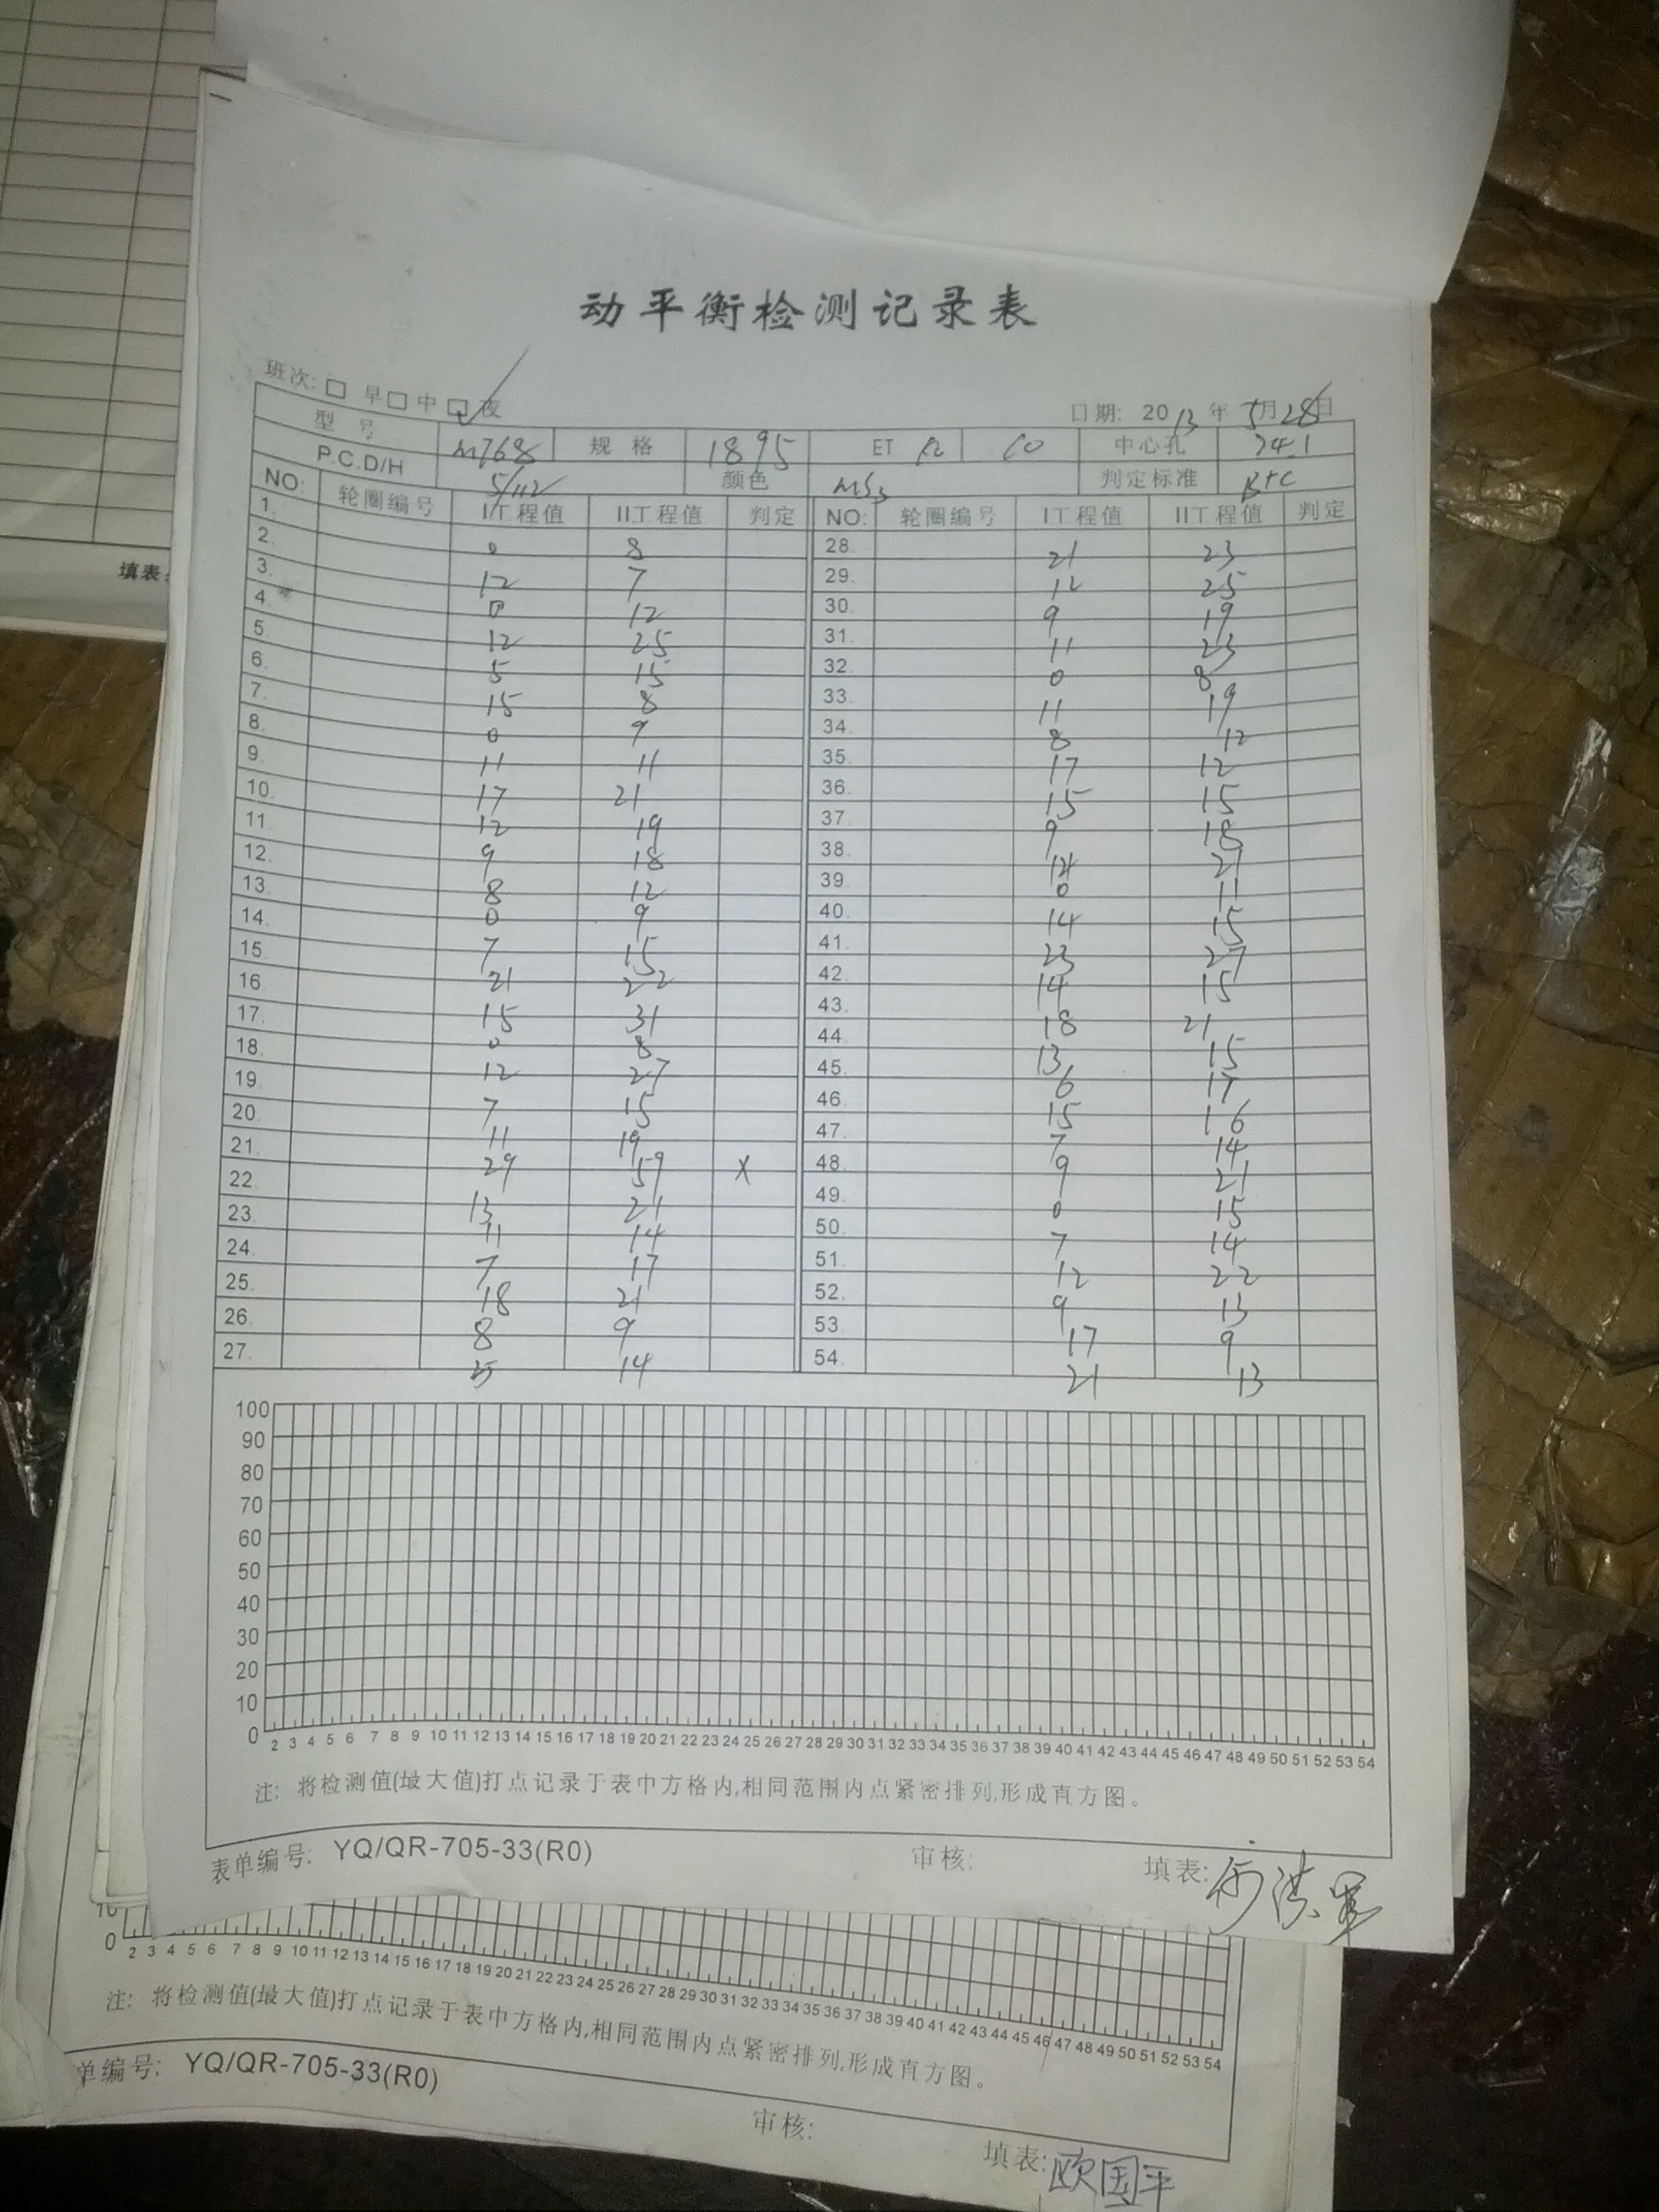 动平衡检测记录表
班次: □ 早□ 中□ 夜
日期: 2013 年 5月28日
型号 M768 规格 1895 ET 中心孔 74.1
P.C.D/H 5/112 颜色 MS3 判定标准 B+C
NO: 轮圈编号 I工程值 II工程值 判定 NO: 轮圈编号 I工程值 II工程值 判定
1. 0 8 28. 21 23
2. 12 7 29. 12 25
3. 0 12 30. 9 19
4. 12 25 31. 11 23
5. 5 15 32. 0 8
6. 15 8 33. 11 19
7. 0 9 34. 8 12
8. 11 11 35. 17 12
9. 17 21 36. 15 15
10. 12 19 37. 9 18
11. 9 18 38. 14 21
12. 8 12 39. 0 11
13. 0 9 40. 14 15
14. 7 15 41. 23 27
15. 21 22 42. 14 15
16. 15 31 43. 18 21
17. 0 8 44. 13 15
18. 12 27 45. 6 17
19. 7 15 46. 15 16
20. 11 19 47. 7 14
21. 29 59 X 48. 9 21
22. 13 21 49. 0 15
23. 11 14 50. 7 14
24. 7 17 51. 12 22
25. 18 21 52. 9 13
26. 8 9 53. 17 9
27. 25 14 54. 21 13
100
90
80
70
60
50
40
30
20
10
0
2 3 4 5 6 7 8 9 10 11 12 13 14 15 16 17 18 19 20 21 22 23 24 25 26 27 28 29 30 31 32 33 34 35 36 37 38 39 40 41 42 43 44 45 46 47 48 49 50 51 52 53 54
注: 将检测值(最大值)打点记录于表中方格内,相同范围内点紧密排列,形成直方图。
表单编号: YQ/QR-705-33(R0) 审核: 填表:
10
0
2 3 4 5 6 7 8 9 10 11 12 13 14 15 16 17 18 19 20 21 22 23 24 25 26 27 28 29 30 31 32 33 34 35 36 37 38 39 40 41 42 43 44 45 46 47 48 49 50 51 52 53 54
注: 将检测值(最大值)打点记录于表中方格内,相同范围内点紧密排列,形成直方图。
单编号: YQ/QR-705-33(R0) 审核: 填表: 欧国平
填表: